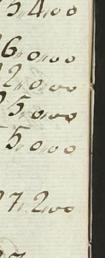 54.00
6.0.00
2.0.00
5.0.00
5.0.00
7.2.00